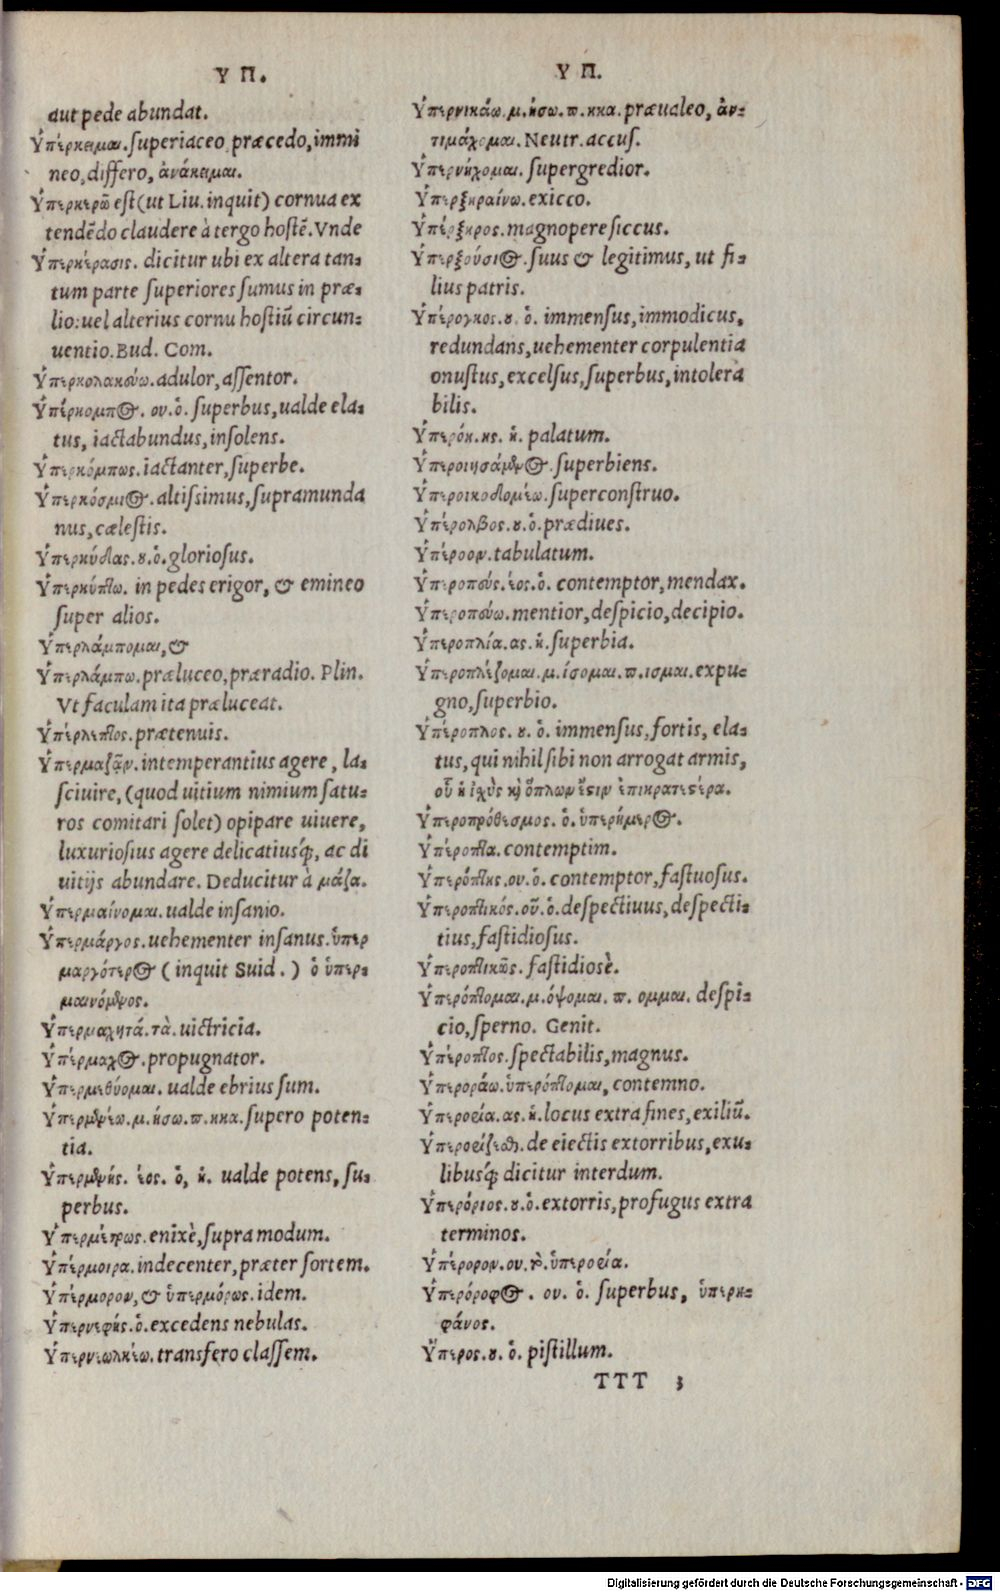 Υ Π.
aut pede abundat.
Ὑπέρκειμαι. superiaceo, præcedo, immi
neo, differo, ἀνάκειμαι.
Ὑπερκερῶ est (ut Liu. inquit) cornua ex
tendēdo claudere à tergo hostē. Vnde
Ὑπερκέρασις. dicitur ubi ex altera tan-
tum parte superiores sumus in præ-
lio: uel alterius cornu hostiū circun-
uentio. Bud. Com.
Ὑπερκολακεύω. adulor, assentor.
Ὑπέρκομπος. ου. ὁ. superbus, ualde ela-
tus, iactabundus, insolens.
Ὑπερκόμπως. iactanter, superbe.
Ὑπερκόσμιος. altissimus, supramunda
nus, cælestis.
Ὑπερκύδας. ου. ὁ. gloriosus.
Ὑπερκύπτω. in pedes erigor, & emineo
super alios.
Ὑπερλάμπομαι, &
Ὑπερλάμπω. præluceo, præradio. Plin.
Vt faculam ita præluceat.
Ὑπέρλεπτος. prætenuis.
Ὑπερμαζᾷν. intemperantius agere, la-
sciuire, (quod uitium nimium satu-
ros comitari solet) opipare uiuere,
luxuriosius agere delicatiusq́, ac di
uitijs abundare. Deducitur à μάζα.
Ὑπερμαίνομαι. ualde insanio.
Ὑπερμάργος. uehementer insanus. ὑπερ
μαργότερος (inquit Suid.) ὁ ὑπερ-
μαινόμενος.
Ὑπερμαχητά. τὰ. uictricia.
Ὑπέρμαχος. propugnator.
Ὑπερμεθύομαι. ualde ebrius sum.
Ὑπερμενέω. μ. ήσω. π. ηκα. supero poten-
tia.
Ὑπερμενής. έος. ὁ, ἡ. ualde potens, su-
perbus.
Ὑπερμέτρως. enixè, supra modum.
Ὑπέρμοιρα. indecenter, præter sortem.
Ὑπέρμορον, & ὑπερμόρως. idem.
Ὑπερνεφής. ὁ. excedens nebulas.
Ὑπερνεωλκέω. transfero classem.
Υ Π.
Ὑπερνικάω. μ. ήσω. π. ηκα. præualeo, ἀν-
τιμάχομαι. Neutr. accus.
Ὑπερνήχομαι. supergredior.
Ὑπερξηραίνω. exicco.
Ὑπέρξηρος. magnopere siccus.
Ὑπερξούσιος. suus & legitimus, ut fi-
lius patris.
Ὑπέρογκος. ου. ὁ. immensus, immodicus,
redundans, uehementer corpulentia
onustus, excelsus, superbus, intolera
bilis.
Ὑπερόη. ης. ἡ. palatum.
Ὑπεροιησάμενος. superbiens.
Ὑπεροικοδομέω. superconstruo.
Ὑπέρολβος. ου. ὁ. prædiues.
Ὑπέροον. tabulatum.
Ὑπεροπεύς. έος. ὁ. contemptor, mendax.
Ὑπεροπεύω. mentior, despicio, decipio.
Ὑπεροπλία. ας. ἡ. superbia.
Ὑπεροπλίζομαι. μ. ίσομαι. π. ισμαι. expu-
gno, superbio.
Ὑπέροπλος. ου. ὁ. immensus, fortis, ela-
tus, qui nihil sibi non arrogat armis,
οὗ ἡ ἰχὺς καὶ ὅπλων ἔστιν ἐπικρατεστέρα.
Ὑπεροπρόθεσμος. ὁ. ὑπερήμερος.
Ὑπέροπτα. contemptim.
Ὑπερόπτης. ου. ὁ. contemptor, fastuosus.
Ὑπεροπτικός. οῦ. ὁ. despectiuus, despecti-
tius, fastidiosus.
Ὑπεροπτικῶς. fastidiosè.
Ὑπερόπτομαι. μ. όψομαι. π. ομμαι. despi-
cio, sperno. Genit.
Ὑπέροπτος. spectabilis, magnus.
Ὑπεροράω. ὑπερόπτομαι, contemno.
Ὑπερορία. ας. ἡ. locus extra fines, exiliū.
Ὑπερορίζεσθαι. de eiectis extorribus, exu-
libusq́ dicitur interdum.
Ὑπερόριος. ου. ὁ. extorris, profugus extra
terminos.
Ὑπέρορον. ου. τὸ. ὑπερορία.
Ὑπερόροφος. ου. ὁ. superbus, ὑπερη-
φάνος.
Ὕπερος. ου. ὁ. pistillum.
TTT 3
Digitalisierung gefördert durch die Deutsche Forschungsgemeinschaft - DFG